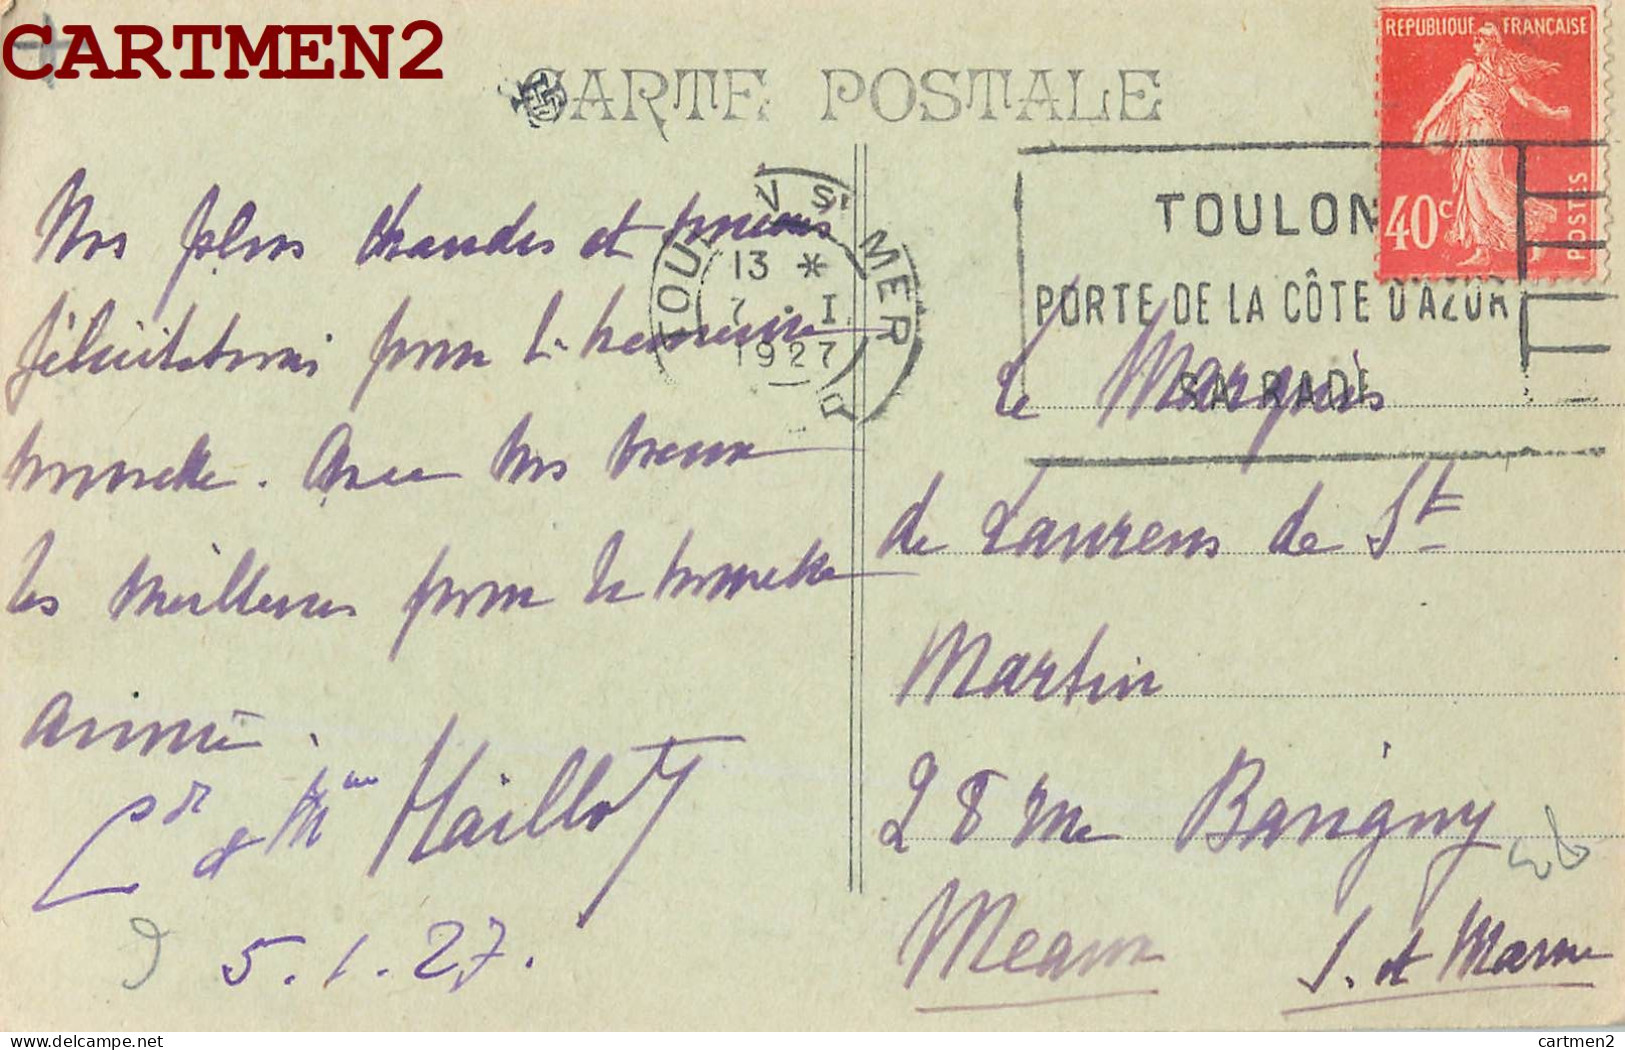 CARTMEN2
CARTE POSTALE
REPUBLIQUE FRANÇAISE
40c
POSTES
TOULON
PORTE DE LA CÔTE D'AZUR
SA RADE
TOUL V S MER
13 *
7 · I
1927
Nos plus chaudes et
félicitations pour l'heureuse
nouvelle. Avec nos voeux
les meilleurs pour la nouvelle
année.
Cdt et Mme Haillot
5.1.27.
Le Marquis
de Laurens de St
Martin
28 rue Barigny
Meaux S. et Marne
delcampe.net
cartmen2